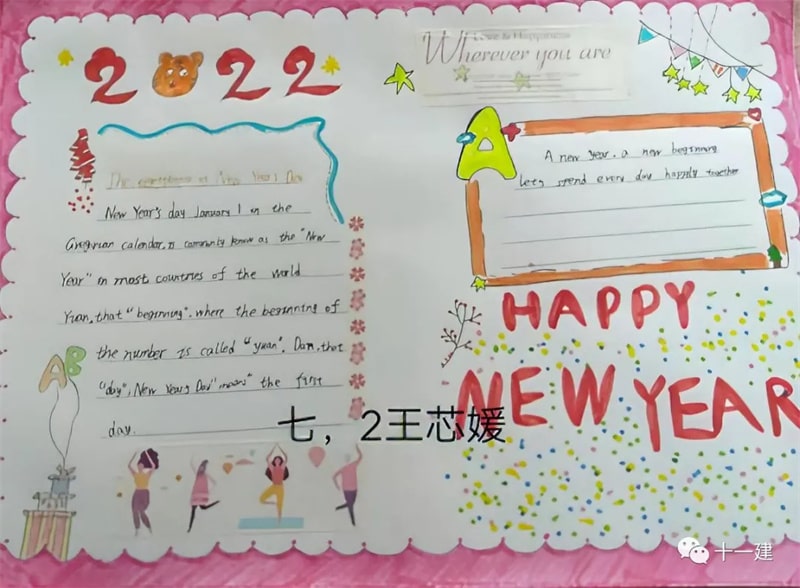 2022
Love & Happiness
Wherever you are
A
A new year, a new beginning
let's spend every day happily together
New Year's day January 1 in the
Gregorian calendar, is commonly know as the "New
Year" in most countries of the world
Yuan, that "beginning", where the beginning of
the number is called "yuan". Dan, that
"day", New Years Day "means" the first
day.
AB
HAPPY
NEW YEAR
七，2王芯媛
十一建